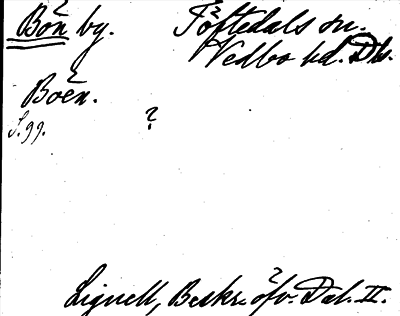 Bön by. Töftedals sn.
Vedbo hd. Dls.
Boën.
S. 99. ?
Lignell, Beskr. öfv. Dal. II.